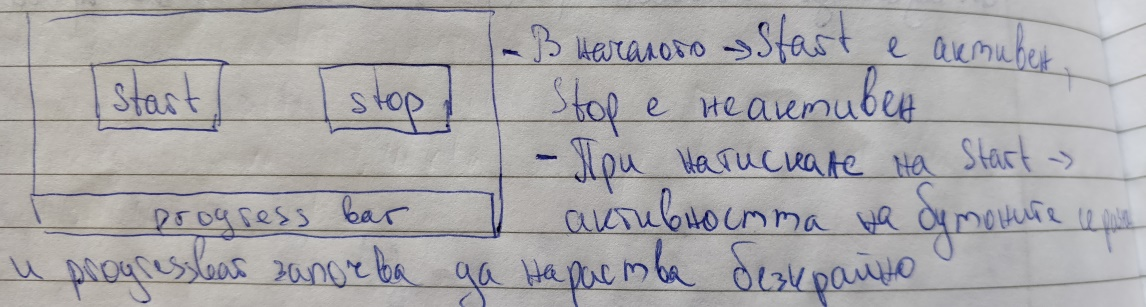 start
stop
progress bar
- В началото → Start е активен,
Stop е неактивен
- При натискане на Start →
активността на бутоните се
и progressbar започва да нараства безкрайно